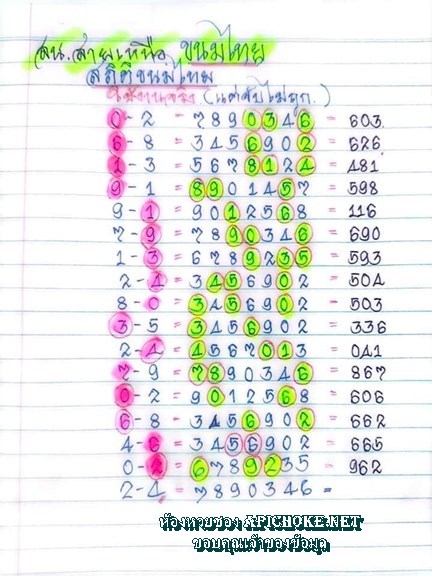 สน.สายเหนือ ขนมไทย
สถิติขนมไทย
ใช้งานจริง (แต่จับไม่ถูก.)
0-2 = 7890346 = 603
6-8 = 3456902 = 626
1-3 = 5678124 = 481
9-1 = 8901457 = 598
9-1 = 9012568 = 116
7-9 = 7890346 = 690
1-3 = 6789235 = 593
2-4 = 3456902 = 504
8-0 = 3456902 = 503
3-5 = 3456902 = 336
2-4 = 4567013 = 041
7-9 = 7890346 = 867
0-2 = 9012568 = 606
6-8 = 3456902 = 662
4-6 = 3456902 = 665
0-2 = 6789235 = 962
2-4 = 7890346 =
ห้องหวยซอง APICHOKE.NET
ขอบคุณเจ้าของข้อมูล